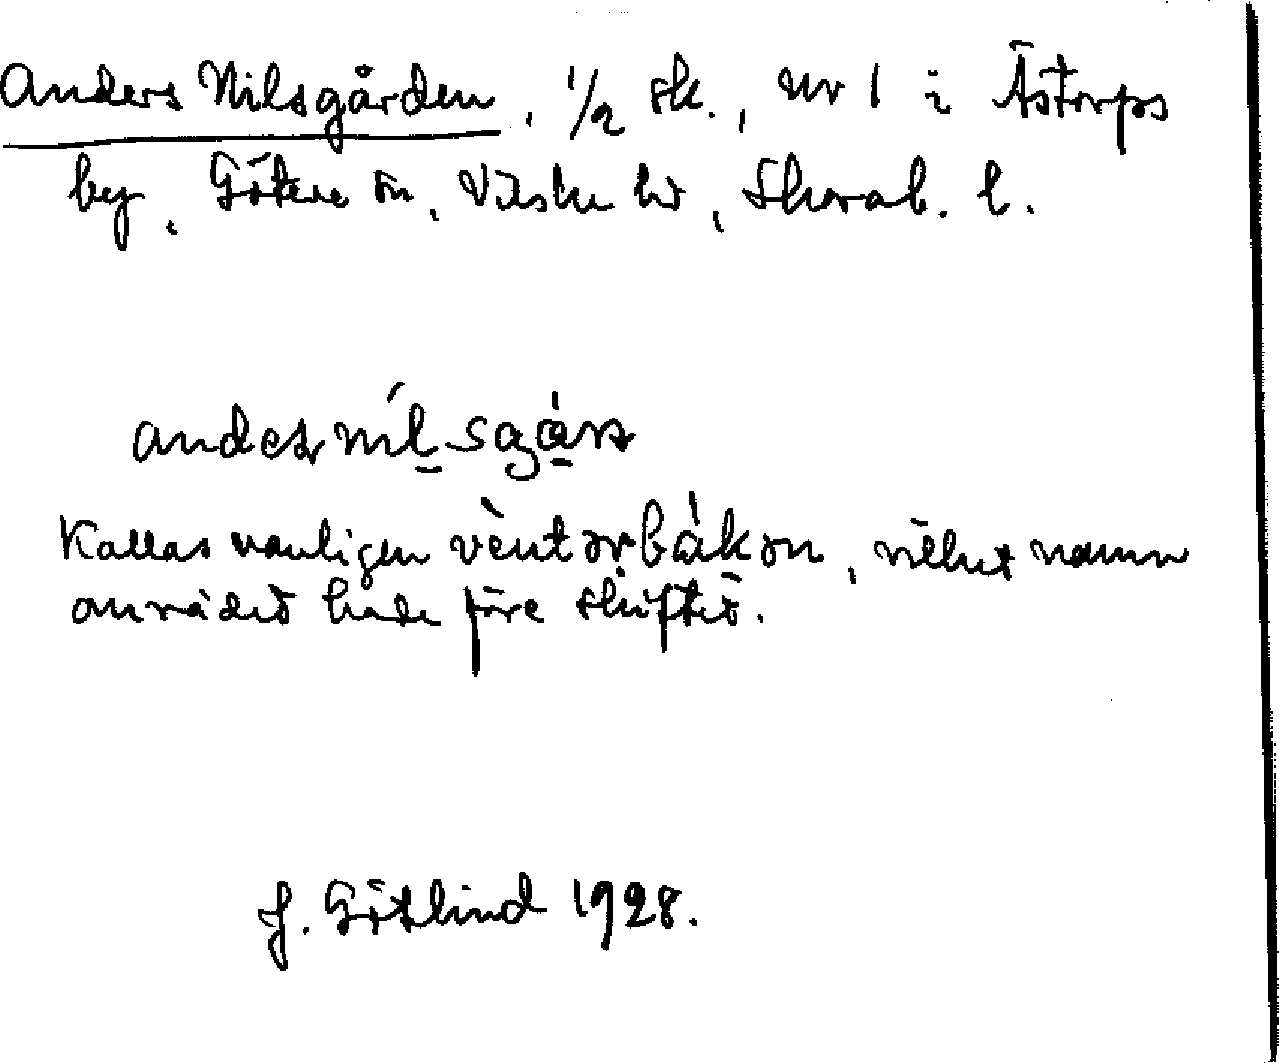 Anders Nilsgården, 1/2 sk., nr 1 i Åstorps
by, Göteve sn, Vilske hd, Skarab. l.
andeʂ nílsgán
Kallas vanligen vènt ər bákən, vilket namn
området hade före skiftet.
J. Götlind 1928.